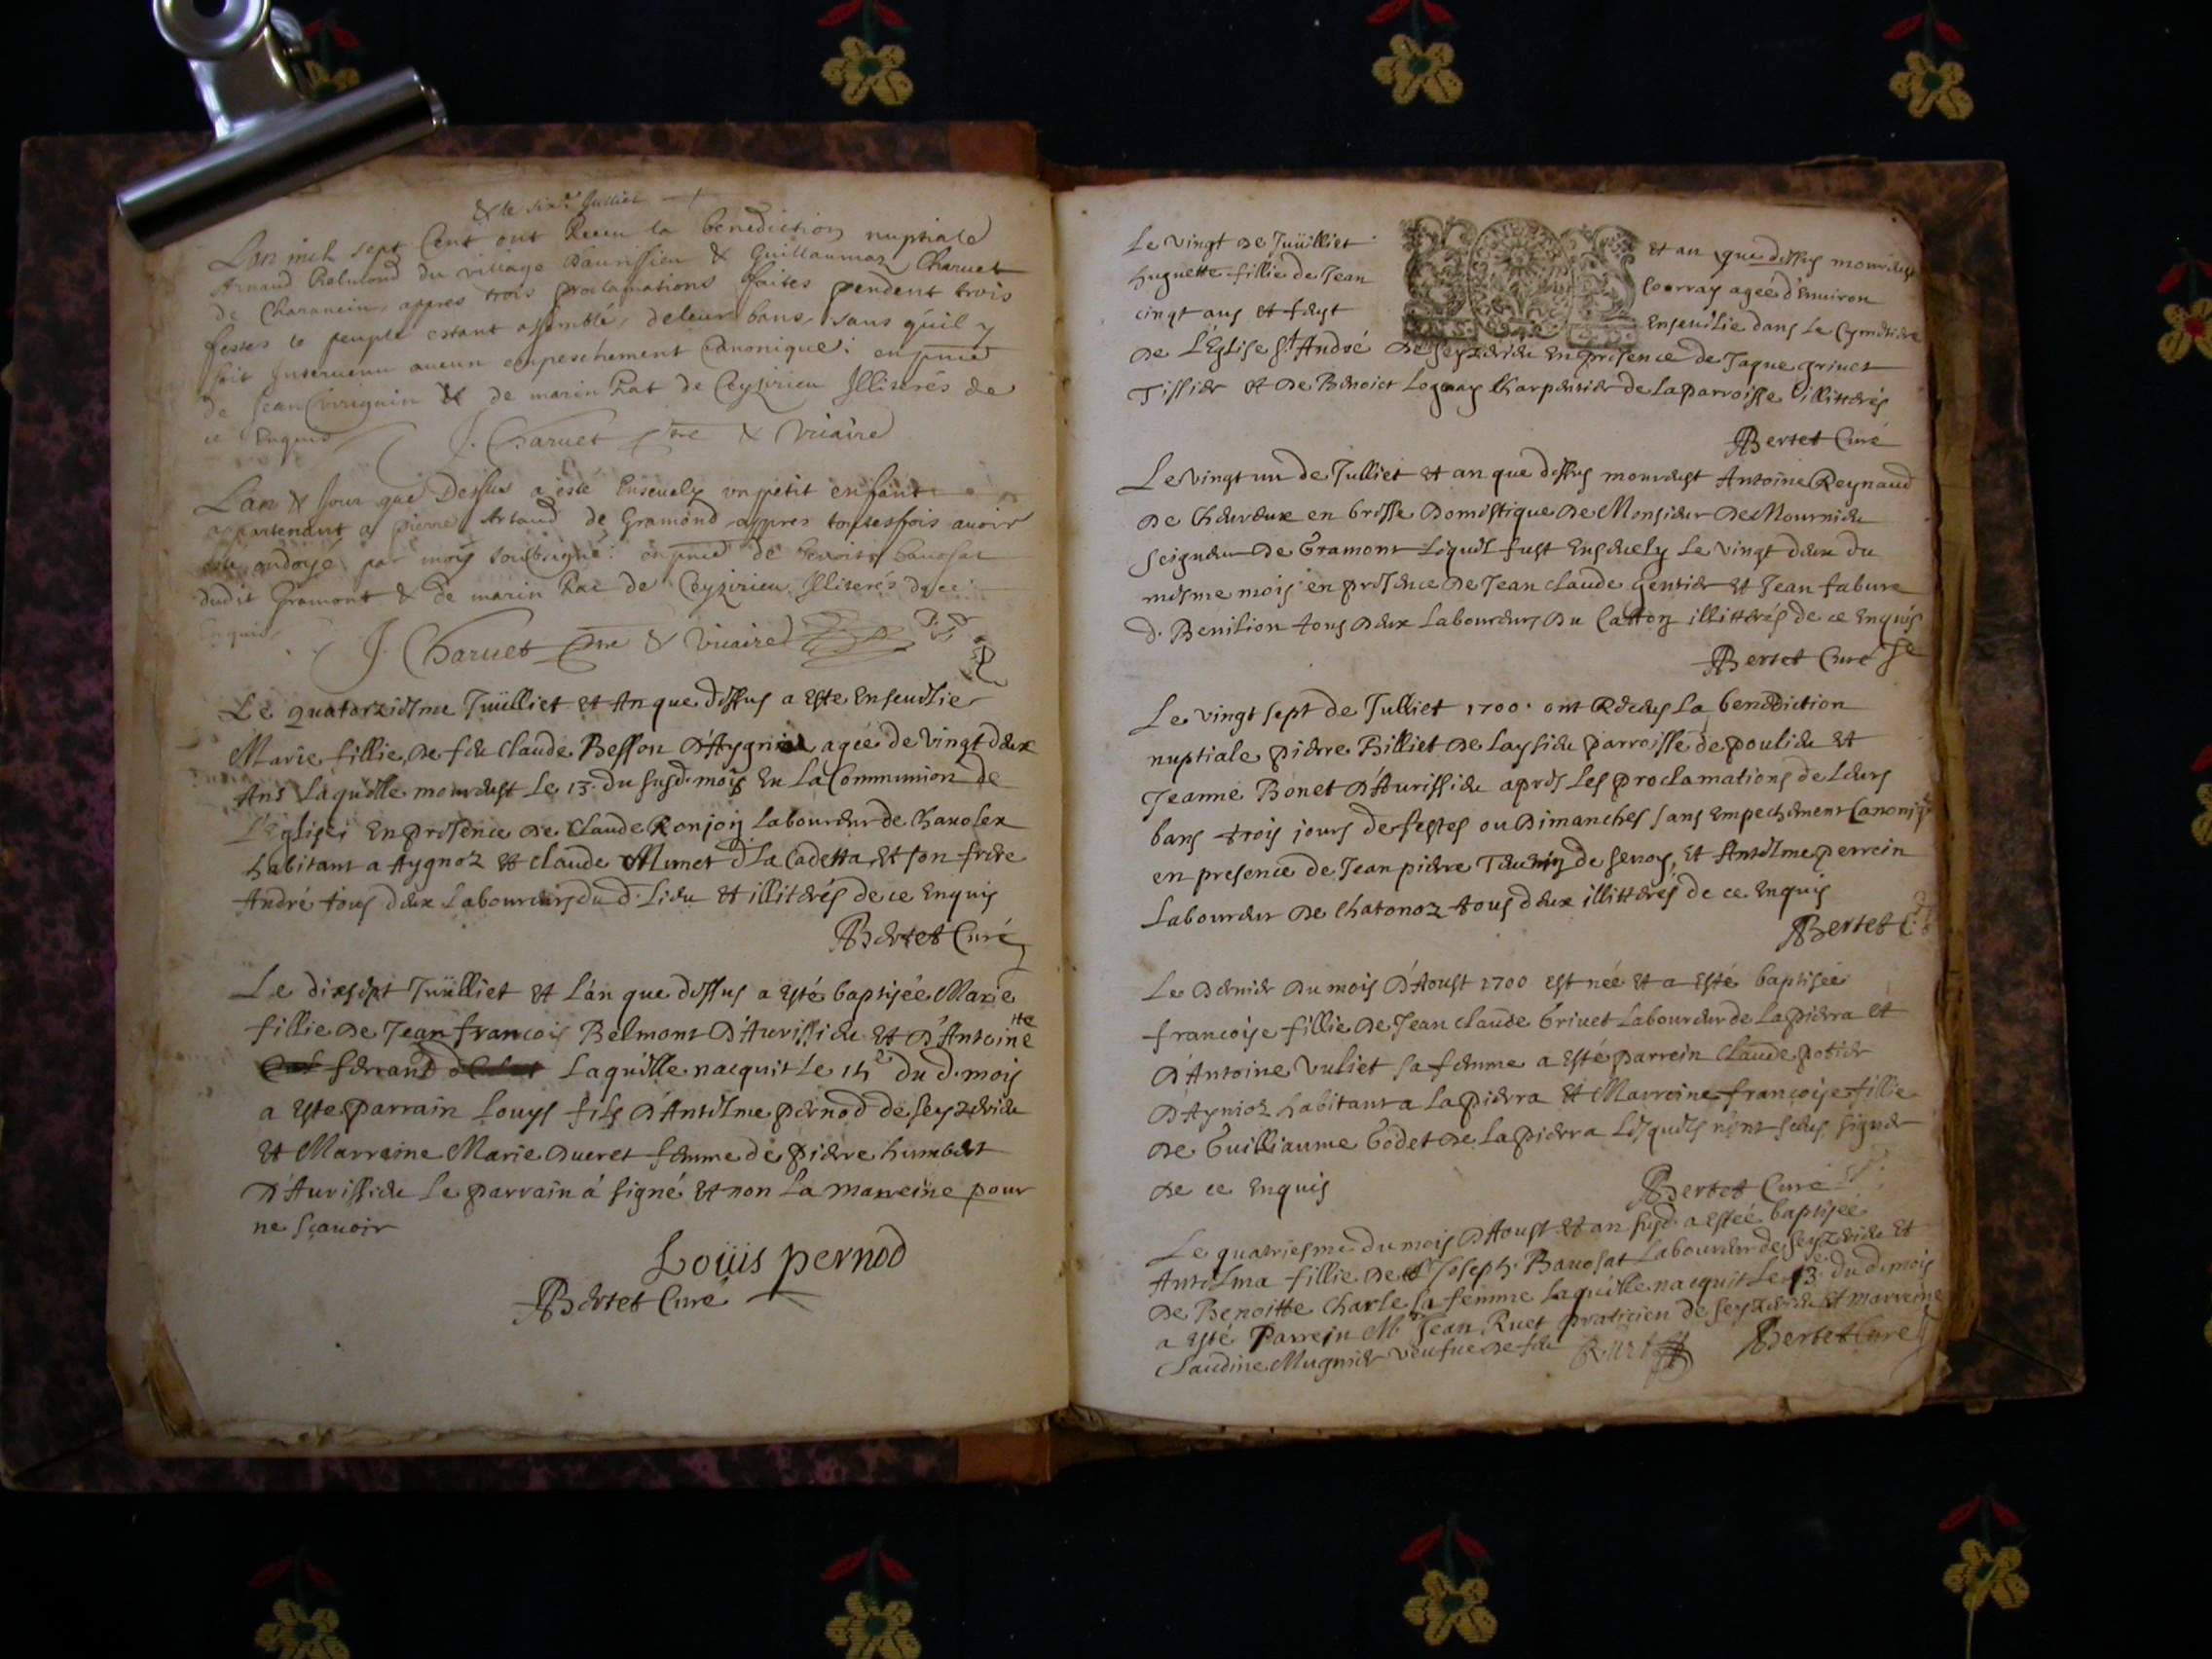 & le six.e Julliet
L'an mil sept Cent ont Receu la benediction nuptiale
Arnaud Belmond du village Daurissieu & Guillaumaz Charuet
de Charancin, appres trois proclamations faites pendent trois
festes le peuple estant assemblé, de leur bans, sans qu'il y
soit Interuenu aucun empeschement Canonique: en pnce
de Jean & de marin Rat de Ceyzirieu Illiterés de
ce Enquis J. Charuet ptre & Vicaire
L'an & Jour que Dessus a esté Enseuely vn petit enfant
appartenant a pierre Artaud de Gramond appres toutesfois auoir
esté ondoyé par moy soubsigné: en pnce de Benoit Bauosat
dudit Gramont & de marin Rat de Ceyzirieu Illiterés de ce
Enquis
J. Charuet ptre & Vicaire
Le quatorziesme Juilliet et An que dessus a este Enseuelie
Marie fillie de feu Claude Besson D'Aygnioz agée de vingt deux
Ans laquelle mourust le 13. du susd. mois En La Communion de
L'Eglise; En presence de Claude Ronjon Laboureur de Chauolex
habitant a Aygnoz et Claude Mimet d La Cadetta et son frere
André tous deux Laboureurs du d. Lieu et illiterés de ce Enquis
Bertet Curé
Le dixsept Juilliet et L'an que dessus a esté baptisée Marie
fillie de Jean francois Belmont D'Aurissieu et D'Antoinette
ferrand Laquelle nacquit le 15e du d. mois
a este parrain Louys fils D'Antelme pernod de Seyzerieu
et Marraine Marie Dueret femme de pierre humbert
D'Aurissieu Le parrain à signé et non La marreine pour
ne sçauoir
Loüis pernod
Bertet Curé
Le vingt de Juilliet et an que dessus mourust
huguette fillie de Jean Courray agée d'Enuiron
cinqt ans et fust Enseuelie dans Le Cymetiere
de L'Église St André de Seyzerieu En presence de Jaque griuet
Tissier et de Benoict Lognay Charpentier de La parroisse illitterés
Bertet Curé
Le vingt un de Julliet et an que dessus mourust Antoine Reynaud
de Cheueux en bresse Domestique de Monsieur De Mornieu
Seigneur de Gramont Lequel fust Enseuely Le vingt deux du
mesme mois en presence de Jean Claude gentier et Jean fabure
d. Benilion tous deux Laboureurs du Catton illitterés de ce Enquis
Bertet Curé
Le vingt sept de Julliet 1700. ont Receus La benediction
nuptiale pierre Billiet de Laysieu parroisse de poulieu et
Jeanne Bonet D'Aurissieu apres Les proclamations de Leurs
bans trois jours de festes ou Dimanches sans Empechement Canoniq
en presence de Jean pierre de Serroy, et Antelme perrein
Laboureur de Chatonoz tous deux illitterés de ce Enquis
Bertet C.
Le Dernier Du mois D'Aoust 1700 est née et a esté baptisée
francoise fillie de Jean Claude Griuet Laboureur de La pierra et
D'Antoine Vuliet sa femme a esté parrein Claude potier
D'Aynioz habitant a La pierra et Marreine françoise fillie
de Guilliaume Godet de La pierra Lesquels n'ont sceus signer
de ce Enquis
Bertet Curé
Le quatriesme du mois D'Aoust et an susd. a estée baptisée
Antelma fillie de Joseph Bauosat Laboureur de Seyzerieu et
de Benoitte Charle sa femme Laquelle nacquit Le 3e du d. mois
a esté Parrein Mr Jean Ruet praticien de Seyzerieu et marreine
Claudine Mugnier veufue de feu Ruet Bertet Curé